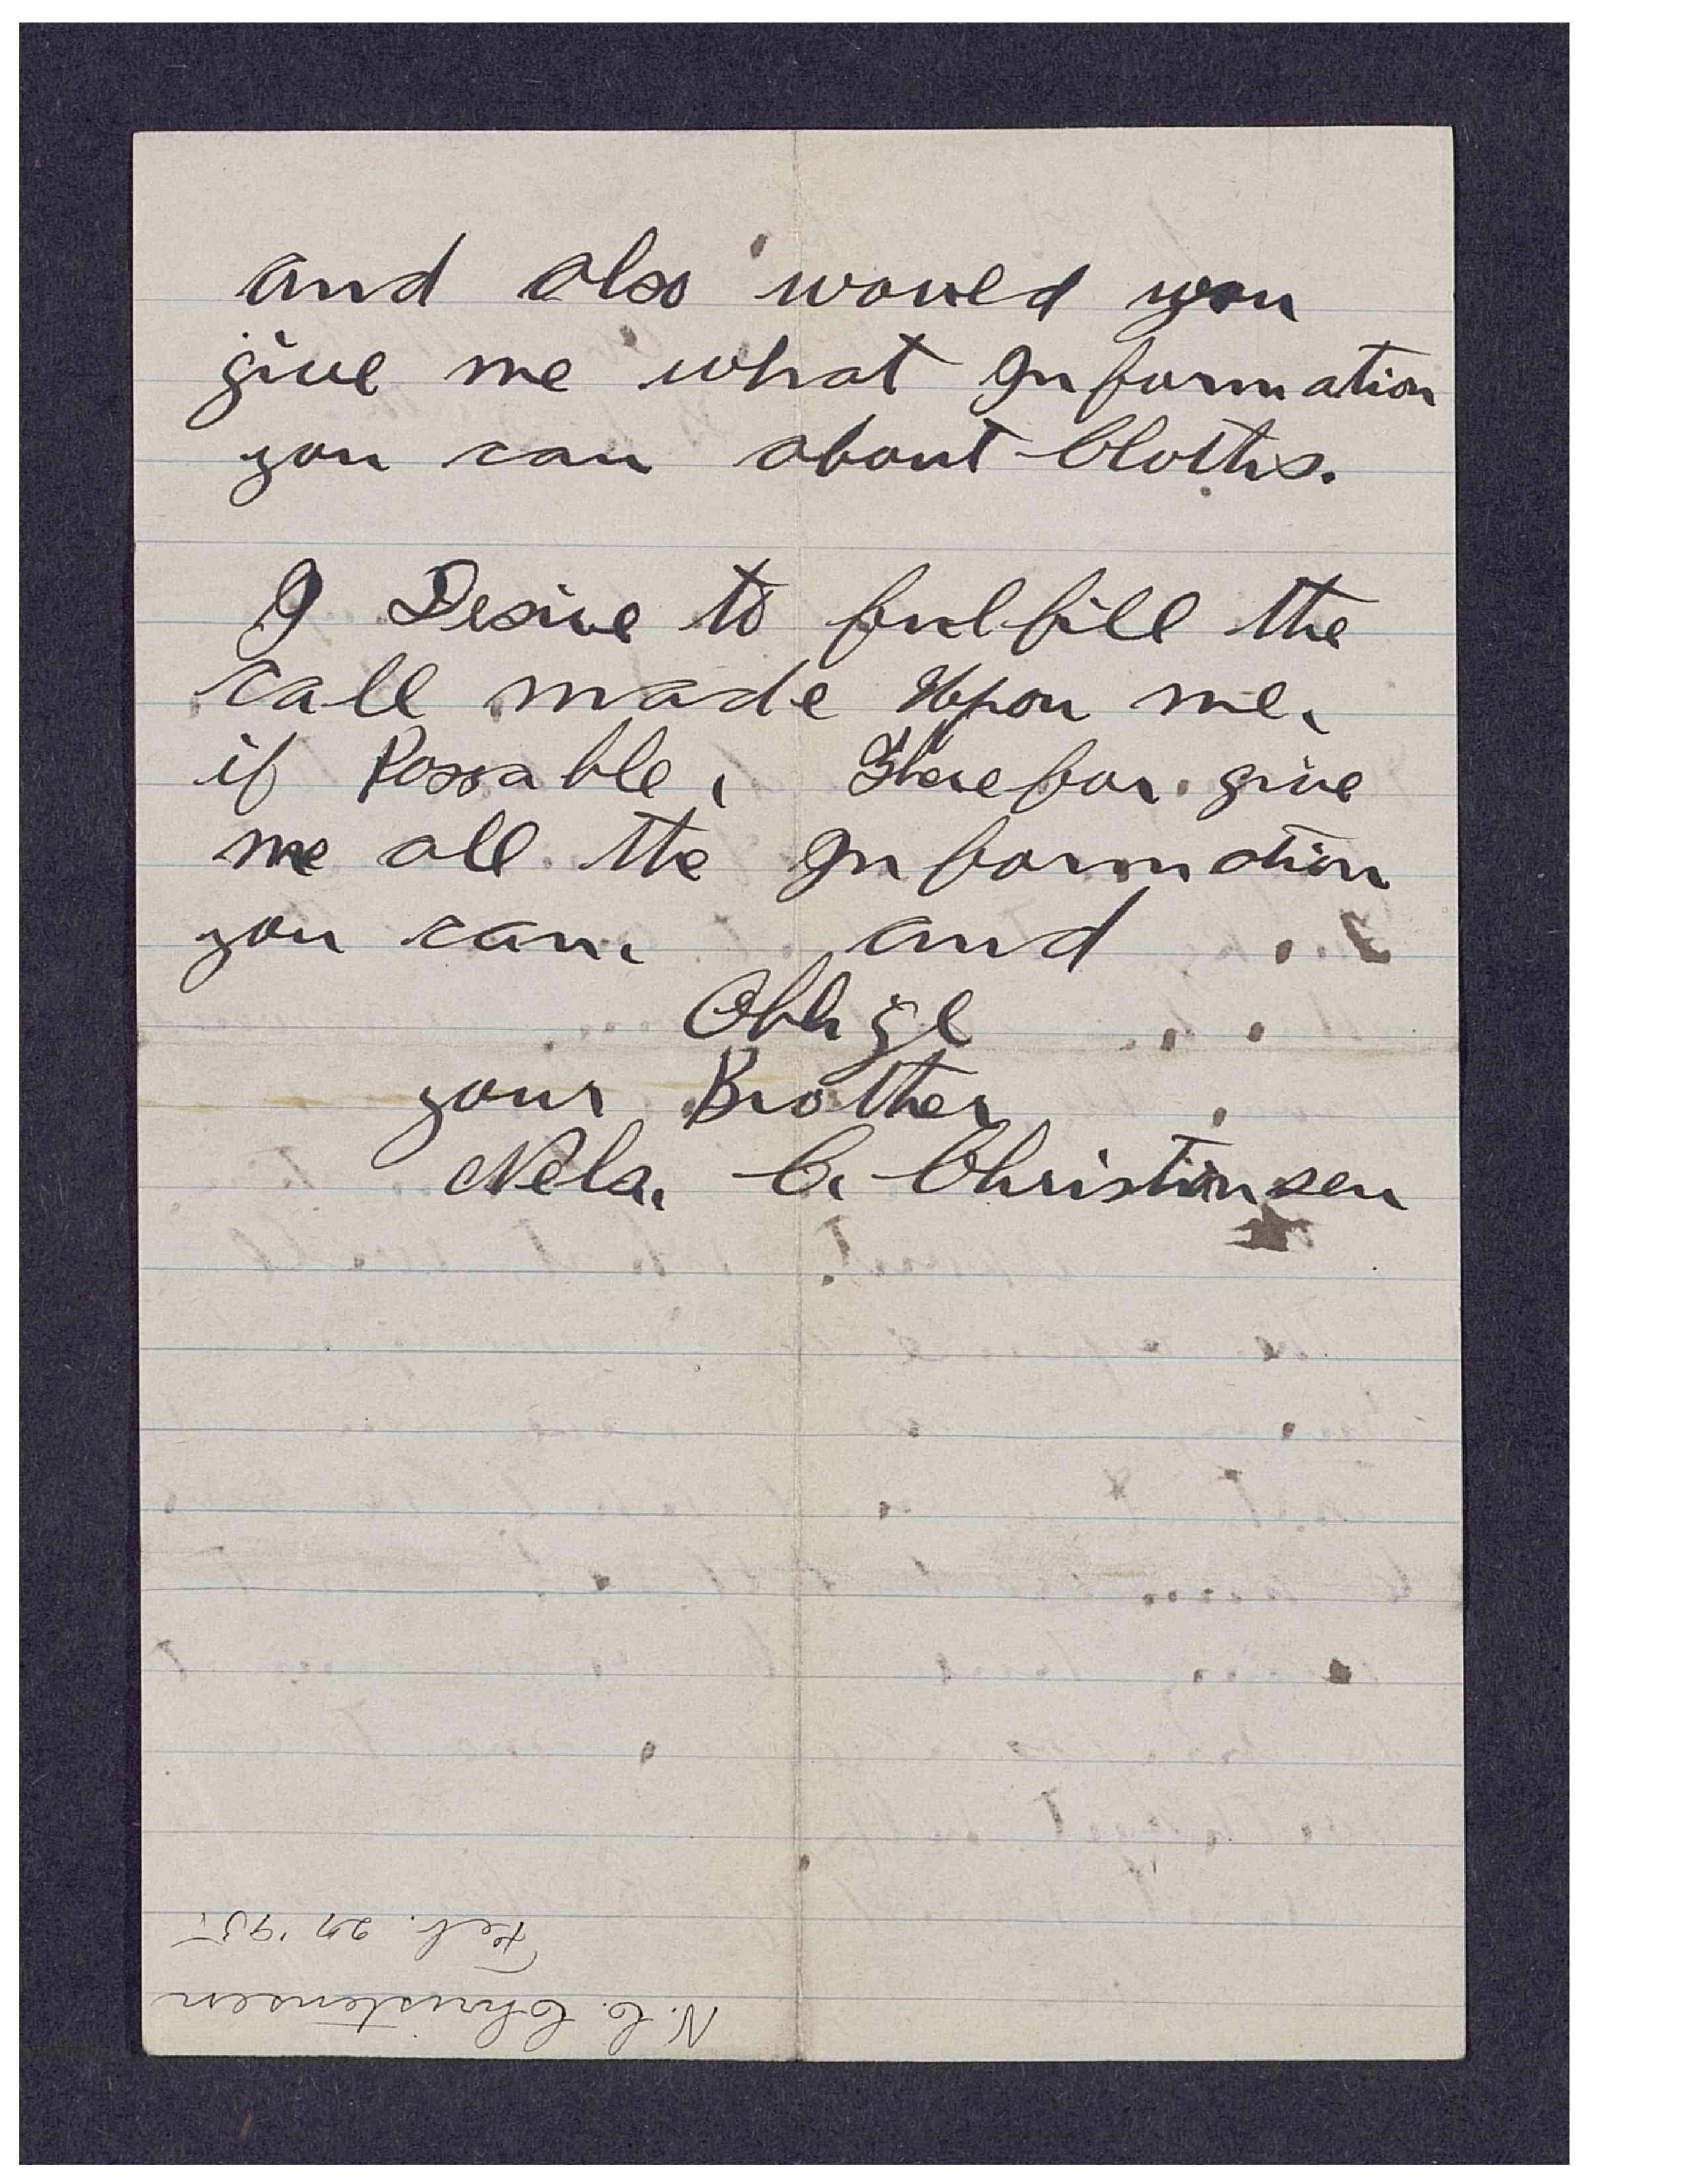 and also woued you
give me what Information
you can about Cloths.
I Desire to fulfill the
call made Upon me,
if Possable, Therefor give
me all the Information
you can, and
Oblige
your Brother
Nels. C. Christiansen
N. C. Christensen
Feb. 27 '95